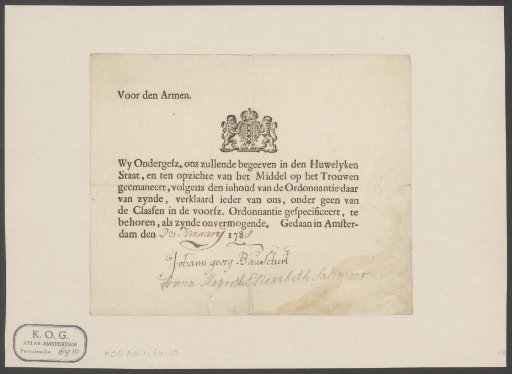 Voor den Armen.
Wy Ondergesz. ons zullende begeeven in den Huwelyken
Staat, en ten opzichte van het Middel op het Trouwen
geëmaneert, volgens den inhoud van de Ordonnantie daar
van zynde, verklaard ieder van ons, onder geen van
de Classen in de voorsz. Ordonnantie gespecificeert, te
behoren, als zynde onvermogende. Gedaan in Amster-
dam den 23 January 178
Johann georg
Anna Elisabeth
K. O. G.
ATLAS AMSTERDAM
6410
KOG-AA-1-64-10